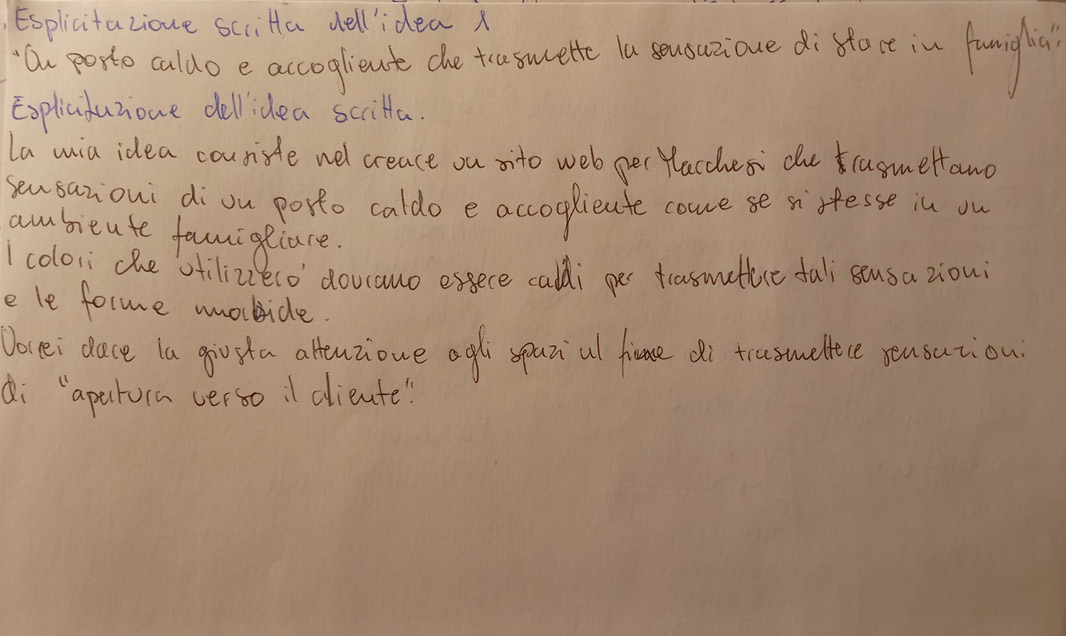 Esplicitazione scritta dell'idea 1
"Un posto caldo e accogliente che trasmette la sensazione di stare in famiglia".
Esplicitazione dell'idea scritta.
La mia idea consiste nel creare un sito web per Macchesi che trasmettano
sensazioni di un posto caldo e accogliente come se si stesse in un
ambiente famigliare.
I colori che utilizzerò dovrano essere caldi per trasmettere tali sensazioni
e le forme morbide.
Vorrei dare la giusta attenzione agli spazi al fine di trasmettere sensazioni
di "apertura verso il cliente".